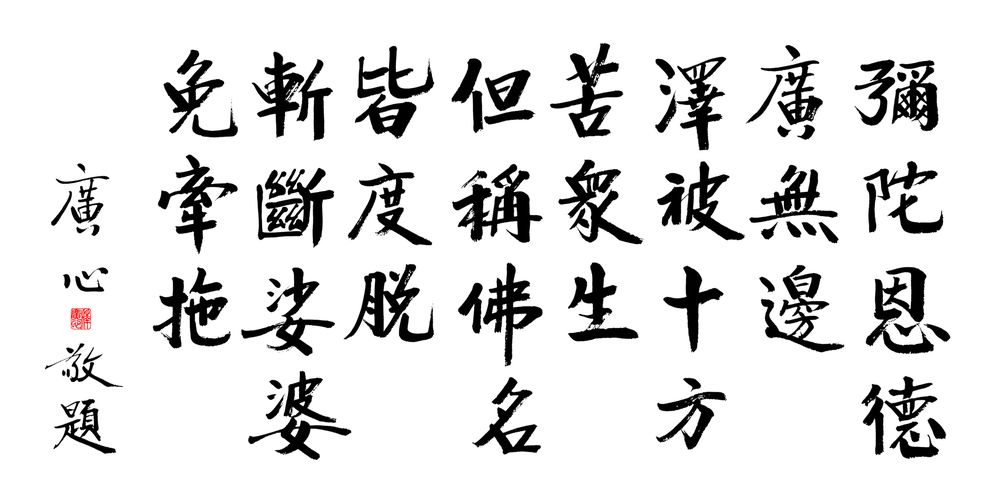 彌陀恩德
廣無邊
澤被十方
苦眾生
但稱佛名
皆度脫
斬斷娑婆
免牽拖
廣心敬題